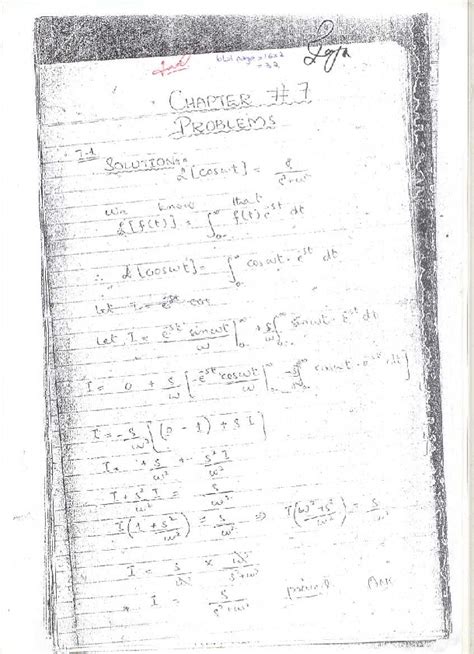 CHAPTER # 7
PROBLEMS
7-1 SOLUTION:-
ℒ[cosωt] = s / s²+ω²
we know that
ℒ[f(t)] = ∫₀^∞ f(t) e^-st dt
∴ ℒ[cosωt] = ∫₀^∞ cosωt · e^-st dt
Let I = e^-st sinωt / ω |₀^∞ + s/ω ∫₀^∞ sinωt · e^-st dt
I = 0 + s/ω [ -e^-st cosωt / ω |₀^∞ - s/ω ∫₀^∞ cosωt · e^-st dt ]
I = -s/ω² [(0 - 1) + s I]
I = + s/ω² - s² I / ω²
I + s² I / ω² = s/ω²
I (1 + s²/ω²) = s/ω² ⇒ I (ω²+s² / ω²) = s/ω²
I = s/ω² × ω² / s²+ω²
I = s / s²+ω² proved Ans